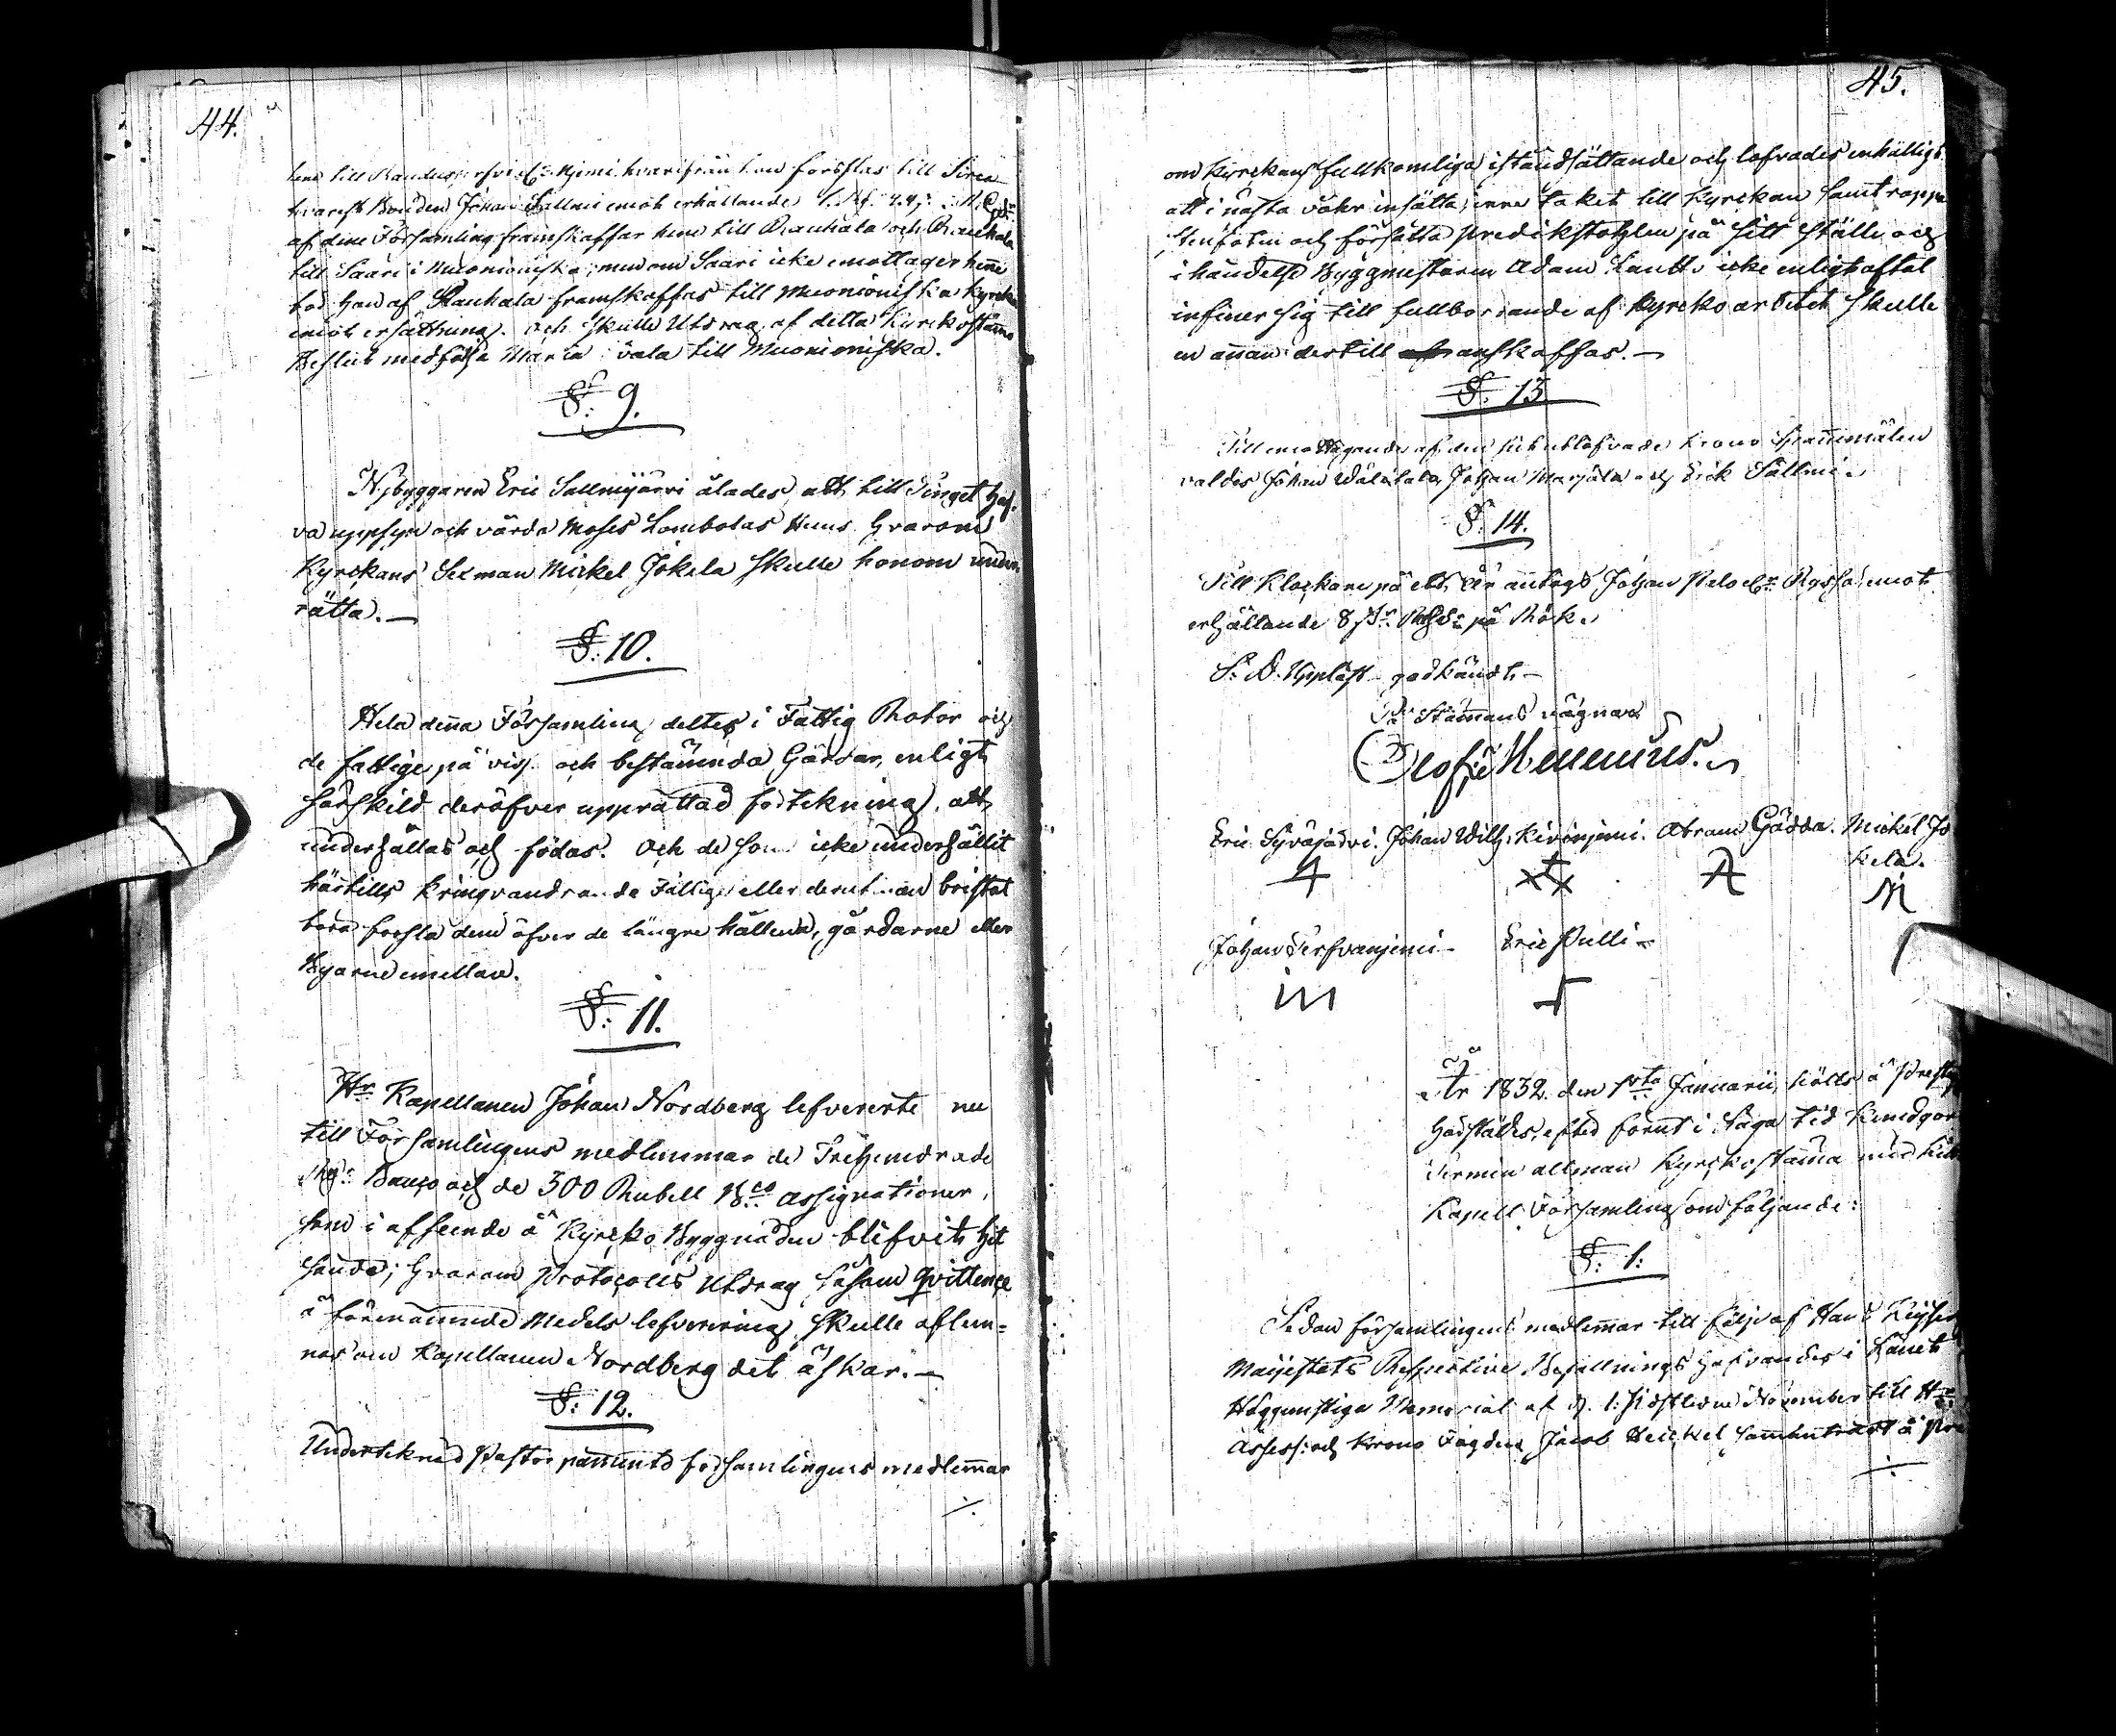 44.
hvarifrån hon forslas till Sirca
hvarest Bonden Johan Sallmi emot erhållande
af denne Församling framskaffar hene till Rauhala och Rauhala
till Saari i Muonioniska; men om Saari icke emottager henne
bör han af Rauhala framskaffas till Muonioniska Kyrcka
emot ersättning. och skulle Utdrag af detta Kyrkostämo
Beslut medfölja Maria till Muonioniska.
§: 9.
Nybyggaren Eric Sallmijärvi ålades att till Tinget haf-
va uppsyn och vårda Moses Lombolas Huus hvarom
Kyrckans Sexman Mickel Jokela skulle honom under-
rätta.—
§: 10.
Hela denna Församling deltes i Fattig Rotor och
de fattige på viss och bestämda Gårdar, enligt
särskild deröfver upprättad förtekning, att
underhållas och födas. Och de som icke underhållit
härtills kringvandrande Fattige eller derutinnan bristat
böra forsla dem öfver de längre hållena, gårdarne eller
Byarne emellan.
§: 11.
Hr Kapellanen Johan Nordberg lefvererte nu
till Församlingens medlemmar de Trehundrade
Rbl: Banco och de 300 Rubell Bco Assignationer,
som i afseende å Kyrcko Byggnaden blifvit hit
sände; hvarom Protocolls Utdrag såsom qvittence
å förenämnde Medels lefverering skulle aflem=
nas om Kapellanen Nordberg det äskar.—
§: 12.
Underteknad Pastor påminte församlingens medlemmar
./.
45.
om Kyrckans fullkomliga iståndsättande och lofvades enhälligt
att i nästa våhr insätta inre taket till Kyrckan samt rappa
Stenfoten och försätta predikstohlen på sitt ställe och
i händelse Byggmestaren Adam Lantto icke enligt aftal
infiner sig till fullbordande af Kyrcko arbetet skulle
en annan dertill anskaffas.—
§: 13
Till emottagande af den utlofvade Krono Spannemålen
valdes Johan Wälitalo, Johan Marjala och Erik Sallmi.
§. 14.
Till Klockare på ett År antogs Johan Palo emot
erhållande 8 på Rök.
S. D. Uppläst – godkändt –
På Stämans vägnar
Olof Memmius.
Eric Syväjärvi. Johan Wilh. Kivinjemi. Abram Gädda. Mickel Jo
kela.
Johan Terfvanjemi – Eric Pulli –
År 1832 den 1sta Januarii hölts å Prestg
härstädes, efter förut i laga tid kundgjor
Termin allmän Kyrckostämma med Kitt
Kapell Församling som följande:
§: 1:
Sedan församlingens medlemmar till följe af Hans Keijser
Majestäts Respective Befallnings hafvandes i Länet
Höggunstiga Memorial af d. 1. sidstledne November till Hr
Assess: och Krono Fogden Jacob Heickel sammanträdt å Pre
./.